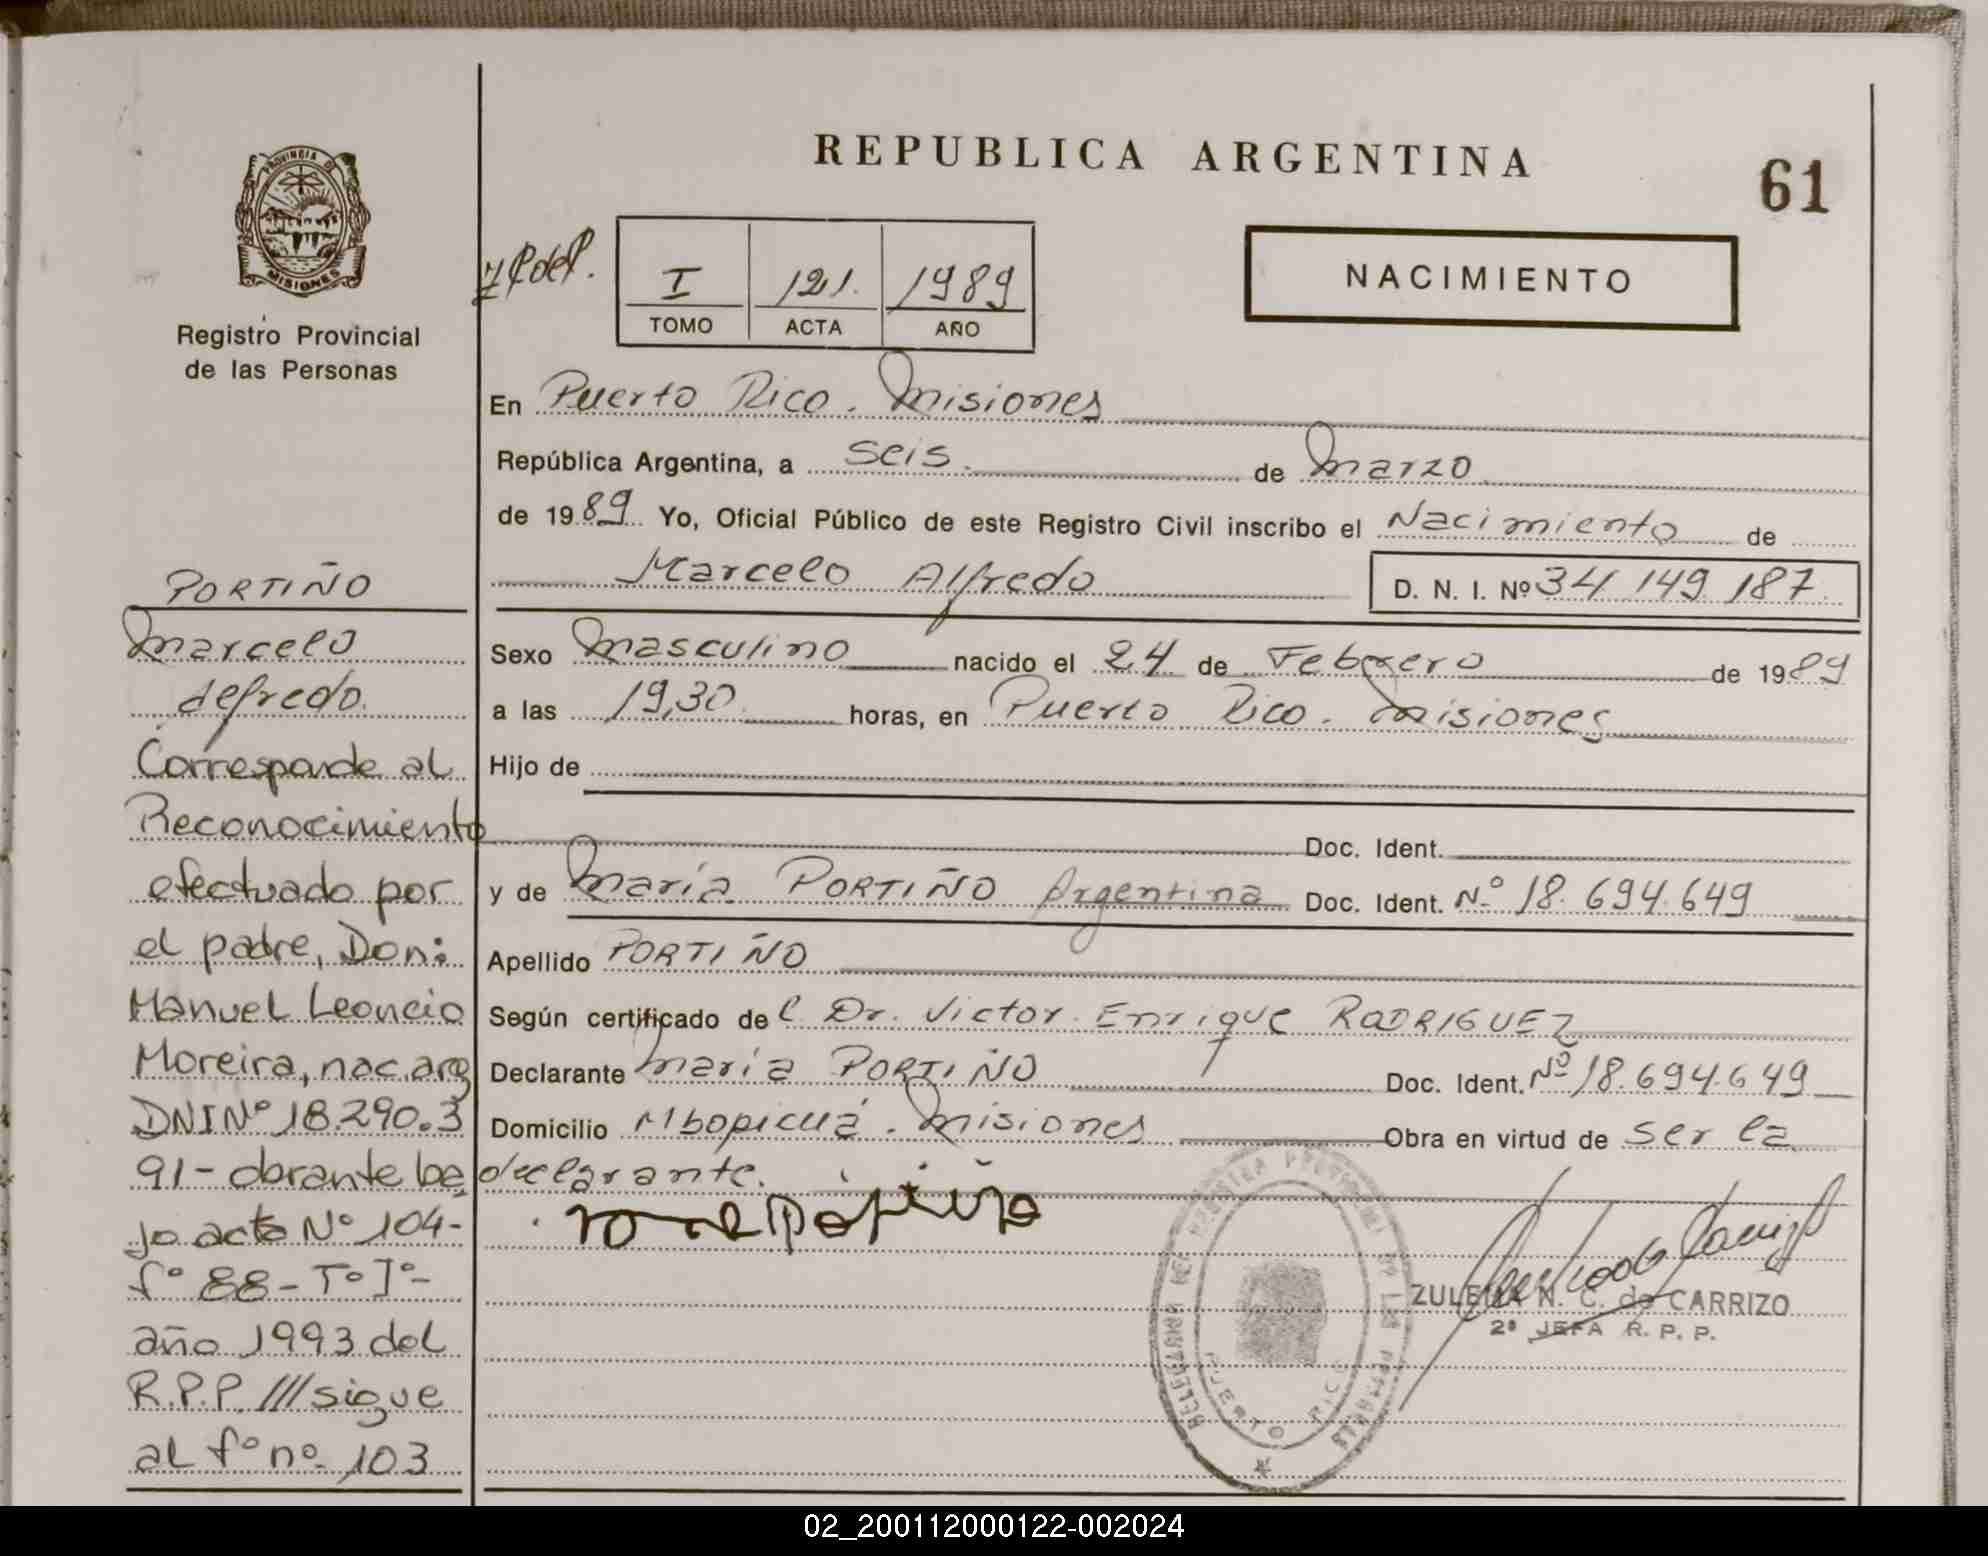 REPUBLICA ARGENTINA
61
PROVINCIA D
MISIONES
Registro Provincial
de las Personas
I 121. 1989
TOMO ACTA AÑO
NACIMIENTO
En Puerto Rico. Misiones
República Argentina, a seis. de Marzo
de 1989 Yo, Oficial Público de este Registro Civil inscribo el Nacimiento de
Marcelo Alfredo D. N. I. Nº 34 149 187
Sexo Masculino nacido el 24 de Febrero de 1989
a las 19,30 horas, en Puerto Rico. Misiones
Hijo de
Doc. Ident.
y de María PORTIÑO Argentina Doc. Ident. Nº 18.694.649
Apellido PORTIÑO
Según certificado del Dr. Victor Enrique RODRIGUEZ
Declarante María PORTIÑO Doc. Ident. Nº 18.694.649
Domicilio Mbopicuá. Misiones Obra en virtud de ser la
declarante.
PORTIÑO
Marcelo
Alfredo.
Corresponde al
Reconocimiento
efectuado por
el padre, Don:
Manuel Leoncio
Moreira, nac. arg
DNI Nº 18.290.3
91 - obrante ba
jo acta Nº 104-
fº 88 - Tº Iº-
año 1993 del
R.P.P. /// sigue
al fº nº 103
PUERTO RICO
ZULEMA N. C. de CARRIZO
2ª JEFA R. P. P.
02_200112000122-002024